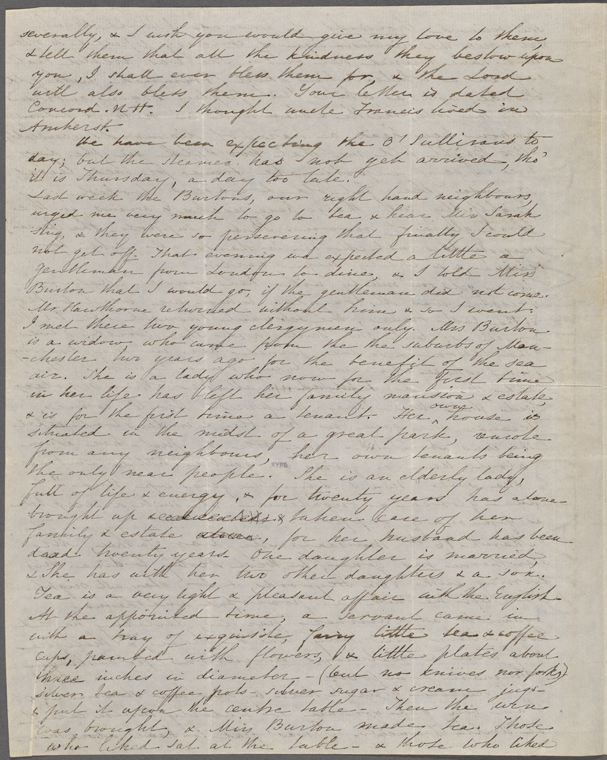 severally, & I wish you would give my love to them,
& tell them that all the kindness they bestow upon
you, I shall ever bless them for, & the Lord
will also bless them. Your letter is dated
Concord. N.H. I thought uncle Francis lived in
Amherst.
We have been expecting the O'Sullivans to
day; but the steamer has not yet arrived, tho'
it is Thursday, a day too late.
Last week the Burtons, our right hand neighbours,
urged me very much to go to tea, & hear Miss Sarah
sing, & they were so persevering that finally I could
not get off. That evening we expected a little a
gentleman from London to dine, & I told Miss
Burton that I would go, if the gentleman did not come.
Mr. Hawthorne returned without him & so I went.
I met there two young clergymen only. Mrs Burton
is a widow, who came from the the suburbs of Man-
-chester two years ago for the benefit of the sea
air. She is a lady who now for the first time
in her life has left her family mansion & estate
& is for the first time a tenant. Her own house is
situated in the midst of a great park, remote
from any neighbours, her own tenants being
the only near people. She is an elderly lady,
full of life & energy, & for twenty years has alone
brought up & taken care of her
family & estate alone, for her husband has been
dead twenty years. One daughter is married,
& she has with her two other daughters & a son.
Tea is a very light & pleasant affair with the English.
At the appointed time, a servant came in
with a tray of exquisite, fairy little tea & coffee
cups, painted with flowers, & little plates about
three inches in diameter - (but no knives nor forks)
silver tea & coffee pots - silver sugar & cream jugs -
& put it upon the centre table - Then the urn
was brought, & Miss Burton made tea. Those
who liked sat at the table - & those who liked